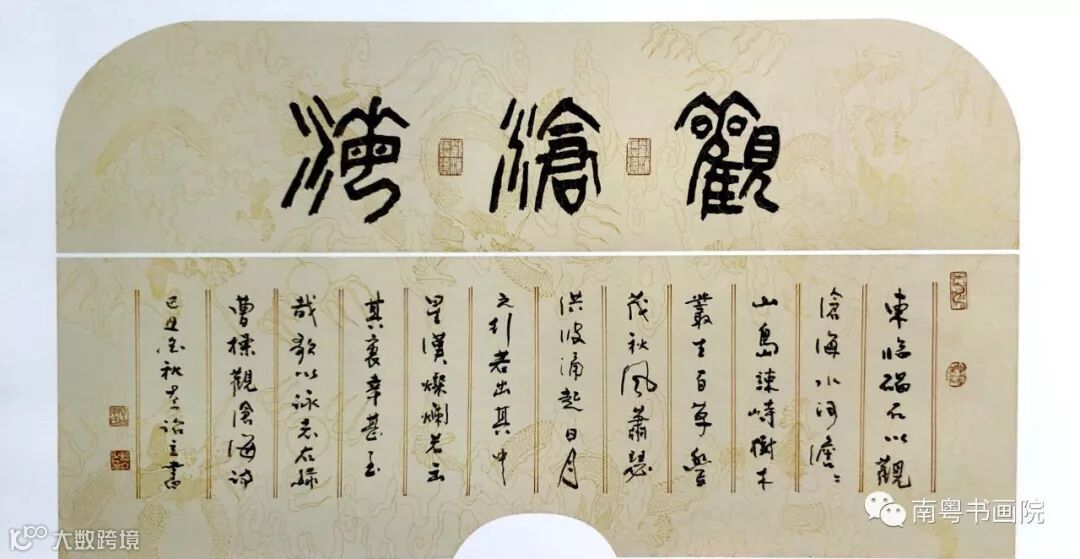 觀滄海
東臨碣石以觀
滄海水何澹〻
山島竦峙樹木
叢生百草豐
茂秋風蕭瑟
洪波涌起日月
之行若出其中
星漢燦爛若出
其裏幸甚至
哉歌以詠志右錄
曹操觀滄海詩
己丑金秋 書
南粤书画院
大数跨境